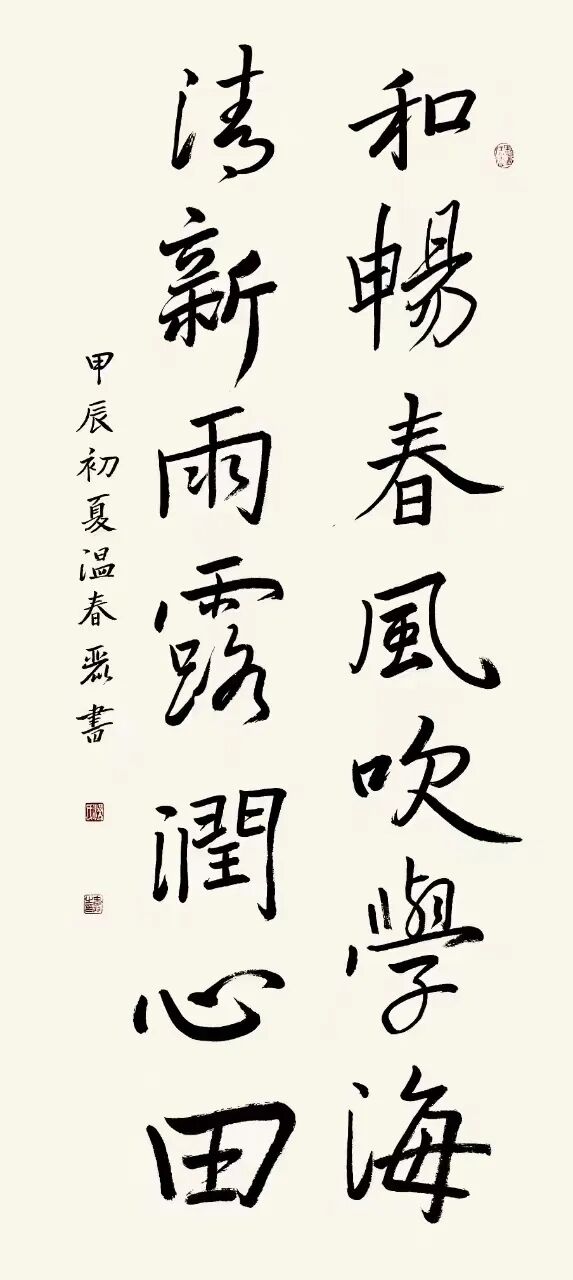 和暢春風吹學海
清新雨露潤心田
甲辰初夏温春震書